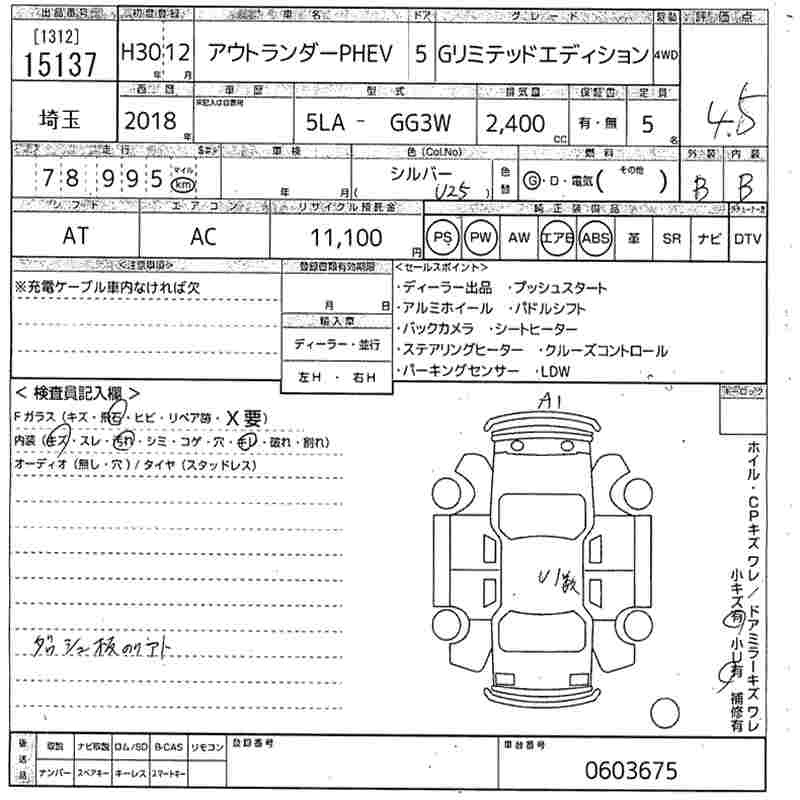 出品番号 初度登録 車名 ドア グレード 駆動 評価点
[1312]
15137 H30 12 アウトランダーPHEV 5 Gリミテッドエディション 4WD
年 月
4.5
西暦 車歴 型式 排気量 保証書 定員
未記入は自家用
埼玉 2018年 5LA - GG3W 2,400 CC 有・無 5 名
走行 車検 色(Col.No) 燃料 外装 内装
78,995 マイル km 年 月 シルバー ( U25 ) 色替 G・D・電気( その他 ) B B
シフト エアコン リサイクル預託金 純正装備品
AT AC 11,100円 PS PW AW エアB ABS 革 SR ナビ DTV
<注意事項> 登録書類有効期限 <セールスポイント>
※充電ケーブル車内なければ欠
月 日
輸入車
ディーラー・並行
左H ・ 右H
・ディーラー出品 ・プッシュスタート
・アルミホイール ・パドルシフト
・バックカメラ ・シートヒーター
・ステアリングヒーター ・クルーズコントロール
・パーキングセンサー ・LDW
< 検査員記入欄 >
Fガラス (キズ・飛石・ヒビ・リペア跡・X要)
内装 (キズ・スレ・汚れ・シミ・コゲ・穴・キレ・破れ・割れ)
オーディオ (無し・穴) / タイヤ (スタッドレス)
A1
U1数
ダッシュ板のりアト
ホイル・CPキズ ワレ / ドアミラーキズ ワレ
小キズ有 小U有 補修有
後送品 取説 ナビ取説 ロム/SD B-CAS リモコン 登録番号 車台番号
ナンバー スペアキー キーレス スマートキー
0603675